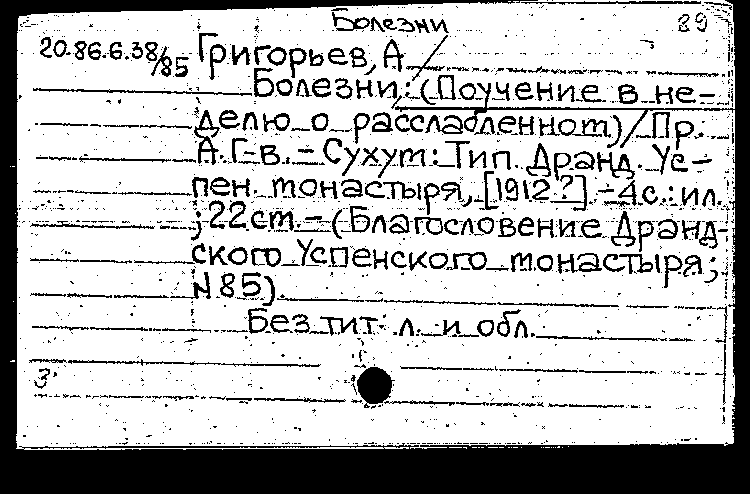 Болезни
89
20.86.6.38/85
Григорьев, А
Болезни: (Поучение в не-
делю о расслабленном) / Пр.
А. Г-в. - Сухум: Тип. Дранд. Ус-
пен. монастыря, [1912?]. - 4 с.: ил.
; 22 см. - (Благословение Дранд-
ского Успенского монастыря;
N 85).
Без тит. л. и обл.
3.